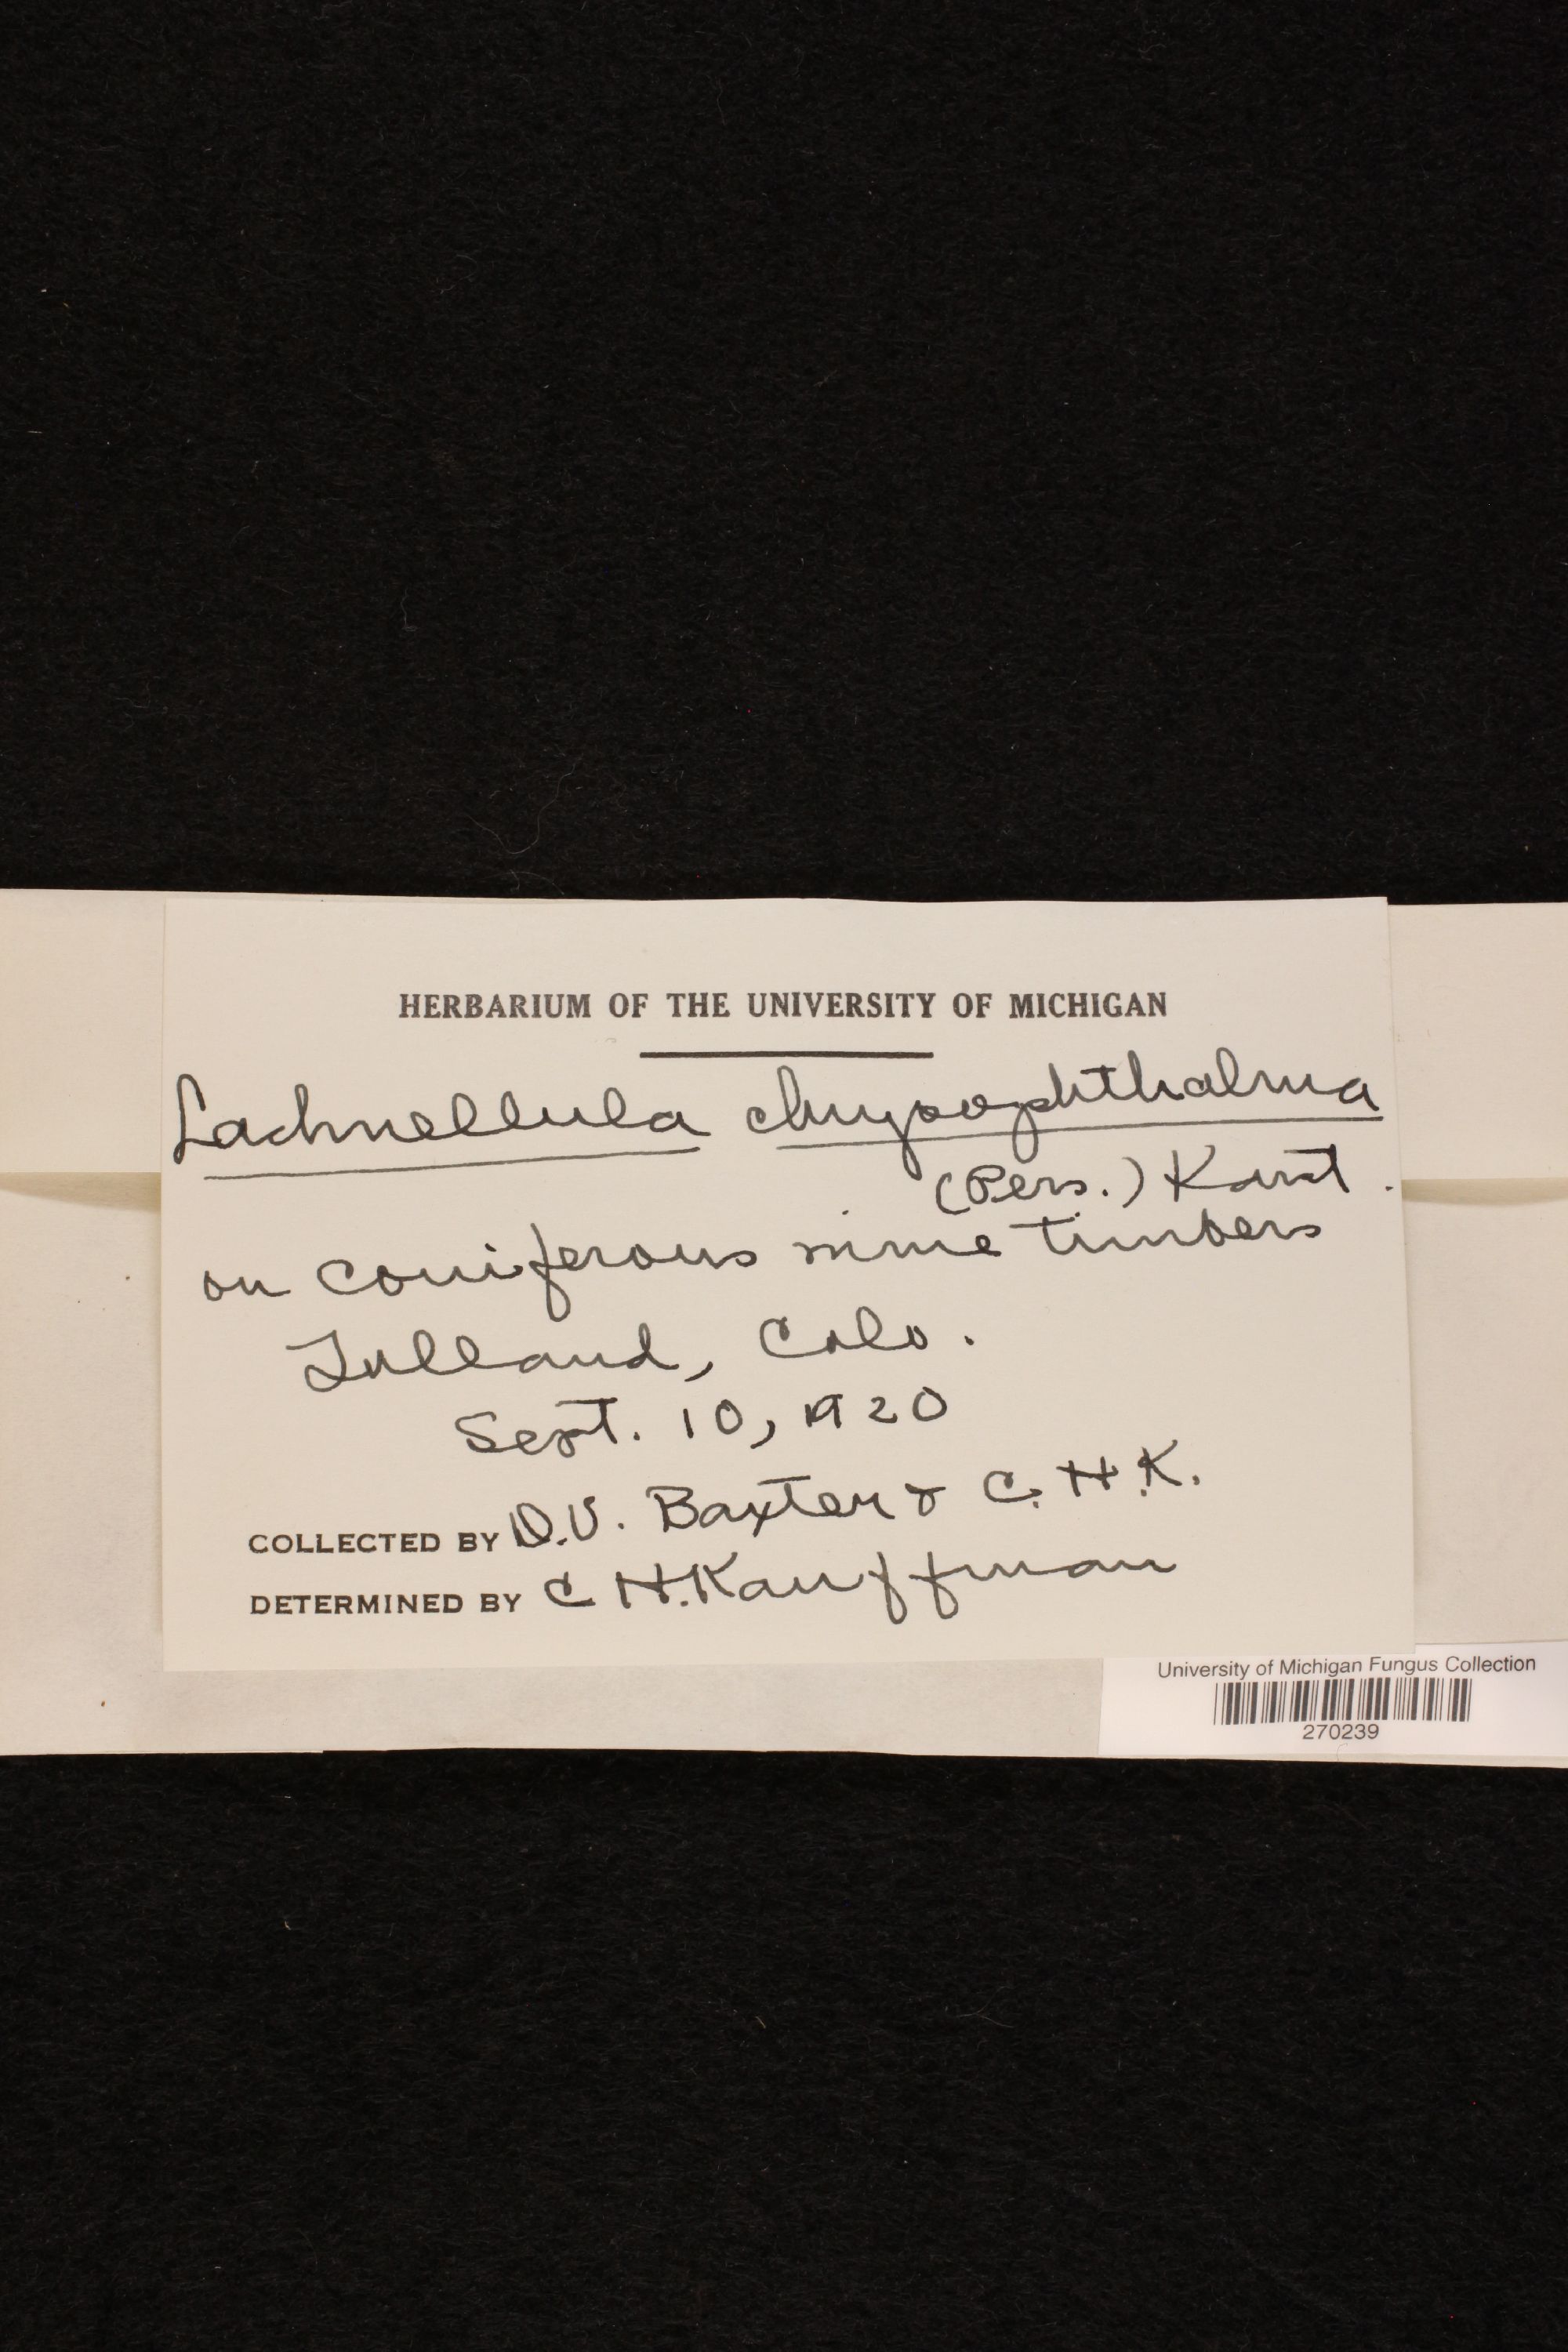 HERBARIUM OF THE UNIVERSITY OF MICHIGAN
Lachnellula chrysophthalma
(Pers.) Karst.
on coniferous mine timbers
Tolland, Colo.
Sept. 10, 1920
COLLECTED BY D.V. Baxter & C.H.K.
DETERMINED BY C H. Kauffman
University of Michigan Fungus Collection
270239